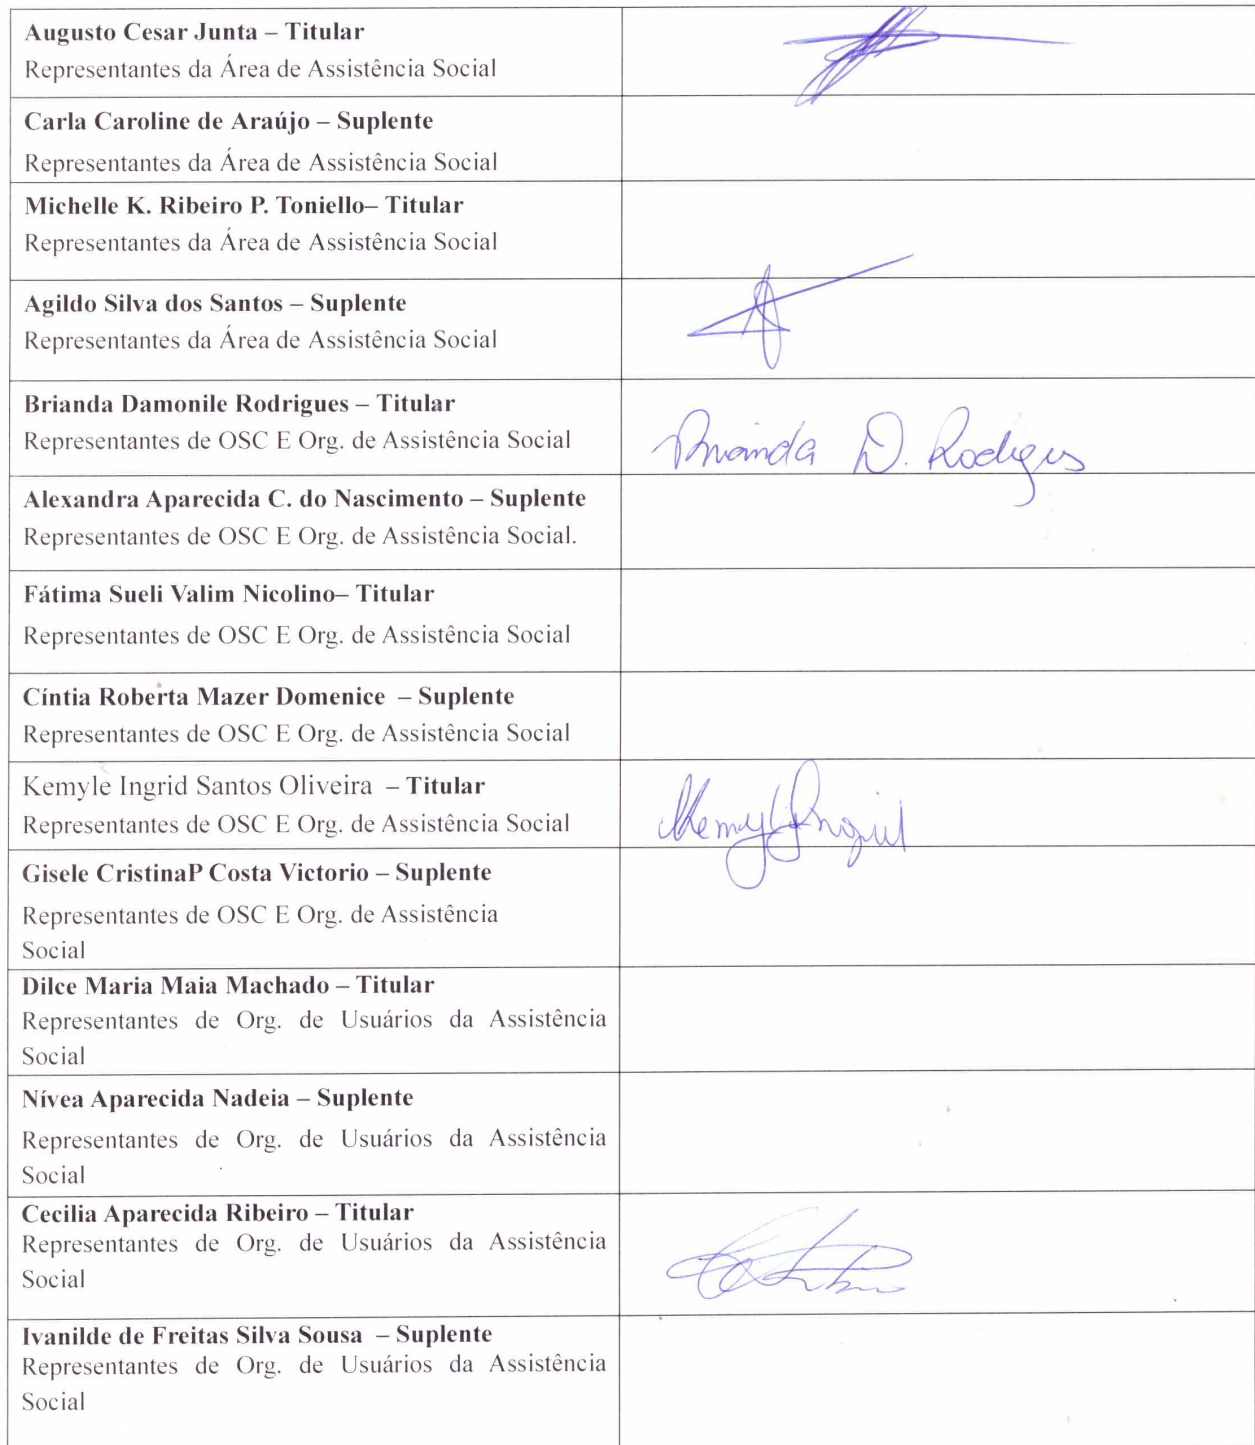 Augusto Cesar Junta – Titular
Representantes da Área de Assistência Social
Carla Caroline de Araújo – Suplente
Representantes da Área de Assistência Social
Michelle K. Ribeiro P. Toniello– Titular
Representantes da Área de Assistência Social
Agildo Silva dos Santos – Suplente
Representantes da Área de Assistência Social
Brianda Damonile Rodrigues – Titular
Representantes de OSC E Org. de Assistência Social
Brianda D. Rodrigues
Alexandra Aparecida C. do Nascimento – Suplente
Representantes de OSC E Org. de Assistência Social.
Fátima Sueli Valim Nicolino– Titular
Representantes de OSC E Org. de Assistência Social
Cíntia Roberta Mazer Domenice – Suplente
Representantes de OSC E Org. de Assistência Social
Kemyle Ingrid Santos Oliveira – Titular
Representantes de OSC E Org. de Assistência Social
Gisele CristinaP Costa Victorio – Suplente
Representantes de OSC E Org. de Assistência
Social
Dilce Maria Maia Machado – Titular
Representantes de Org. de Usuários da Assistência
Social
Nívea Aparecida Nadeia – Suplente
Representantes de Org. de Usuários da Assistência
Social
Cecilia Aparecida Ribeiro – Titular
Representantes de Org. de Usuários da Assistência
Social
Ivanilde de Freitas Silva Sousa – Suplente
Representantes de Org. de Usuários da Assistência
Social